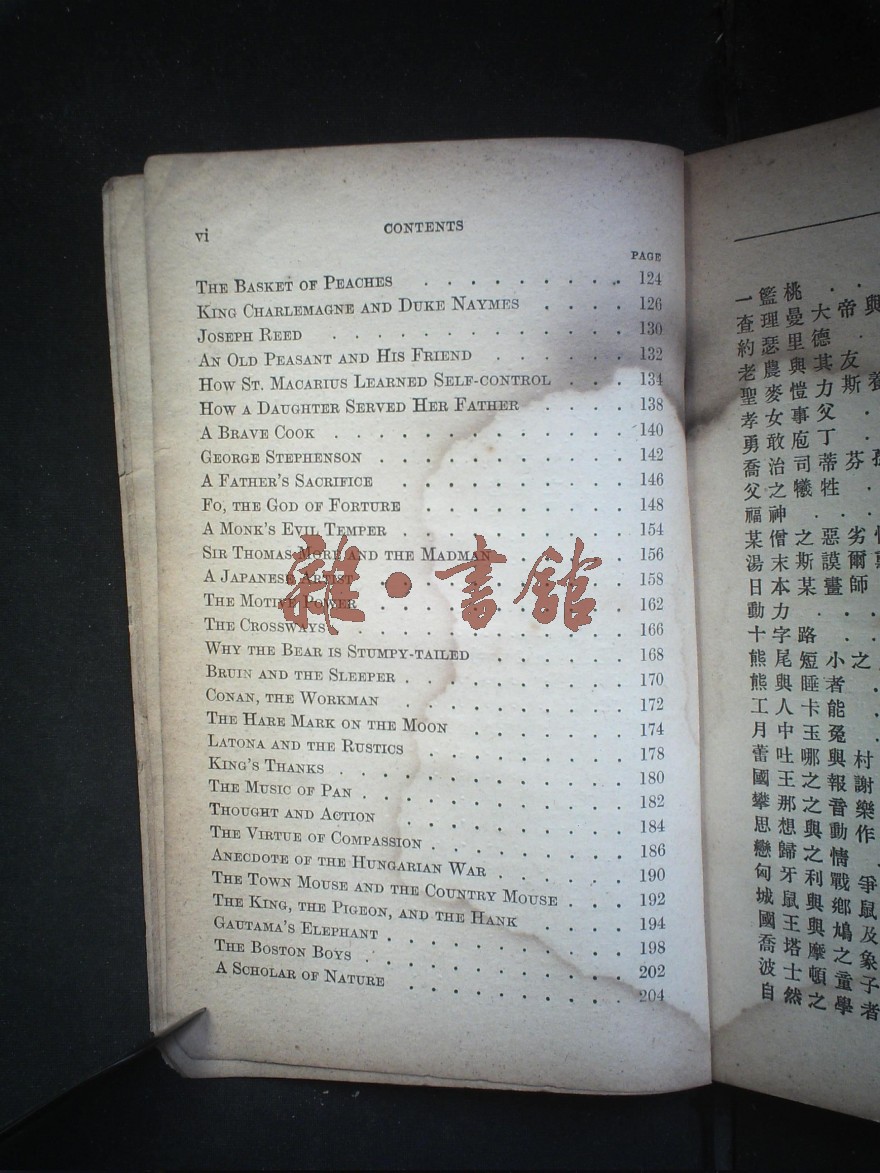 vi CONTENTS
PAGE
THE BASKET OF PEACHES . . . . . . . . . 124
KING CHARLEMAGNE AND DUKE NAYMES . . . . 126
JOSEPH REED . . . . . . . . . . . . 130
AN OLD PEASANT AND HIS FRIEND . . . . . . 132
HOW ST. MACARIUS LEARNED SELF-CONTROL . . . 134
HOW A DAUGHTER SERVED HER FATHER . . . . 138
A BRAVE COOK . . . . . . . . . . . . 140
GEORGE STEPHENSON . . . . . . . . . . 142
A FATHER'S SACRIFICE . . . . . . . . . 146
FO, THE GOD OF FORTURE . . . . . . . . 148
A MONK'S EVIL TEMPER . . . . . . . . . 154
SIR THOMAS MORE AND THE MADMAN . . . . . 156
A JAPANESE ARTIST . . . . . . . . . . 158
THE MOTIVE POWER . . . . . . . . . . 162
THE CROSSWAYS . . . . . . . . . . . 166
WHY THE BEAR IS STUMPY-TAILED . . . . . . 168
BRUIN AND THE SLEEPER . . . . . . . . . 170
CONAN, THE WORKMAN . . . . . . . . . 172
THE HARE MARK ON THE MOON . . . . . . . 174
LATONA AND THE RUSTICS . . . . . . . . 178
KING'S THANKS . . . . . . . . . . . 180
THE MUSIC OF PAN . . . . . . . . . . 182
THOUGHT AND ACTION . . . . . . . . . 184
THE VIRTUE OF COMPASSION . . . . . . . . 186
ANECDOTE OF THE HUNGARIAN WAR . . . . . . 190
THE TOWN MOUSE AND THE COUNTRY MOUSE . . . 192
THE KING, THE PIGEON, AND THE HANK . . . . 194
GAUTAMA'S ELEPHANT . . . . . . . . . . 198
THE BOSTON BOYS . . . . . . . . . . . 202
A SCHOLAR OF NATURE . . . . . . . . . 204
雜·書館
一籃桃 . .
查理曼大帝與
約瑟里德 .
老農與其友
聖麥愷力斯養
孝女事父 .
勇敢庖丁 .
喬治司蒂芬孫
父之犧牲 .
福神 . . .
某僧之惡劣性
湯末斯謨爾
日本某畫師
動力 . . .
十字路 . .
熊尾短小之
熊與睡者 .
工人卡能 .
月中玉冤 .
蕾吐哪與村
國王之報謝
攀那之音樂
思想與動作
戀歸之情 .
匈牙利戰爭
城鼠與鄉鼠
國王與鳩及
喬塔摩之象
波士頓童子
自然之學者